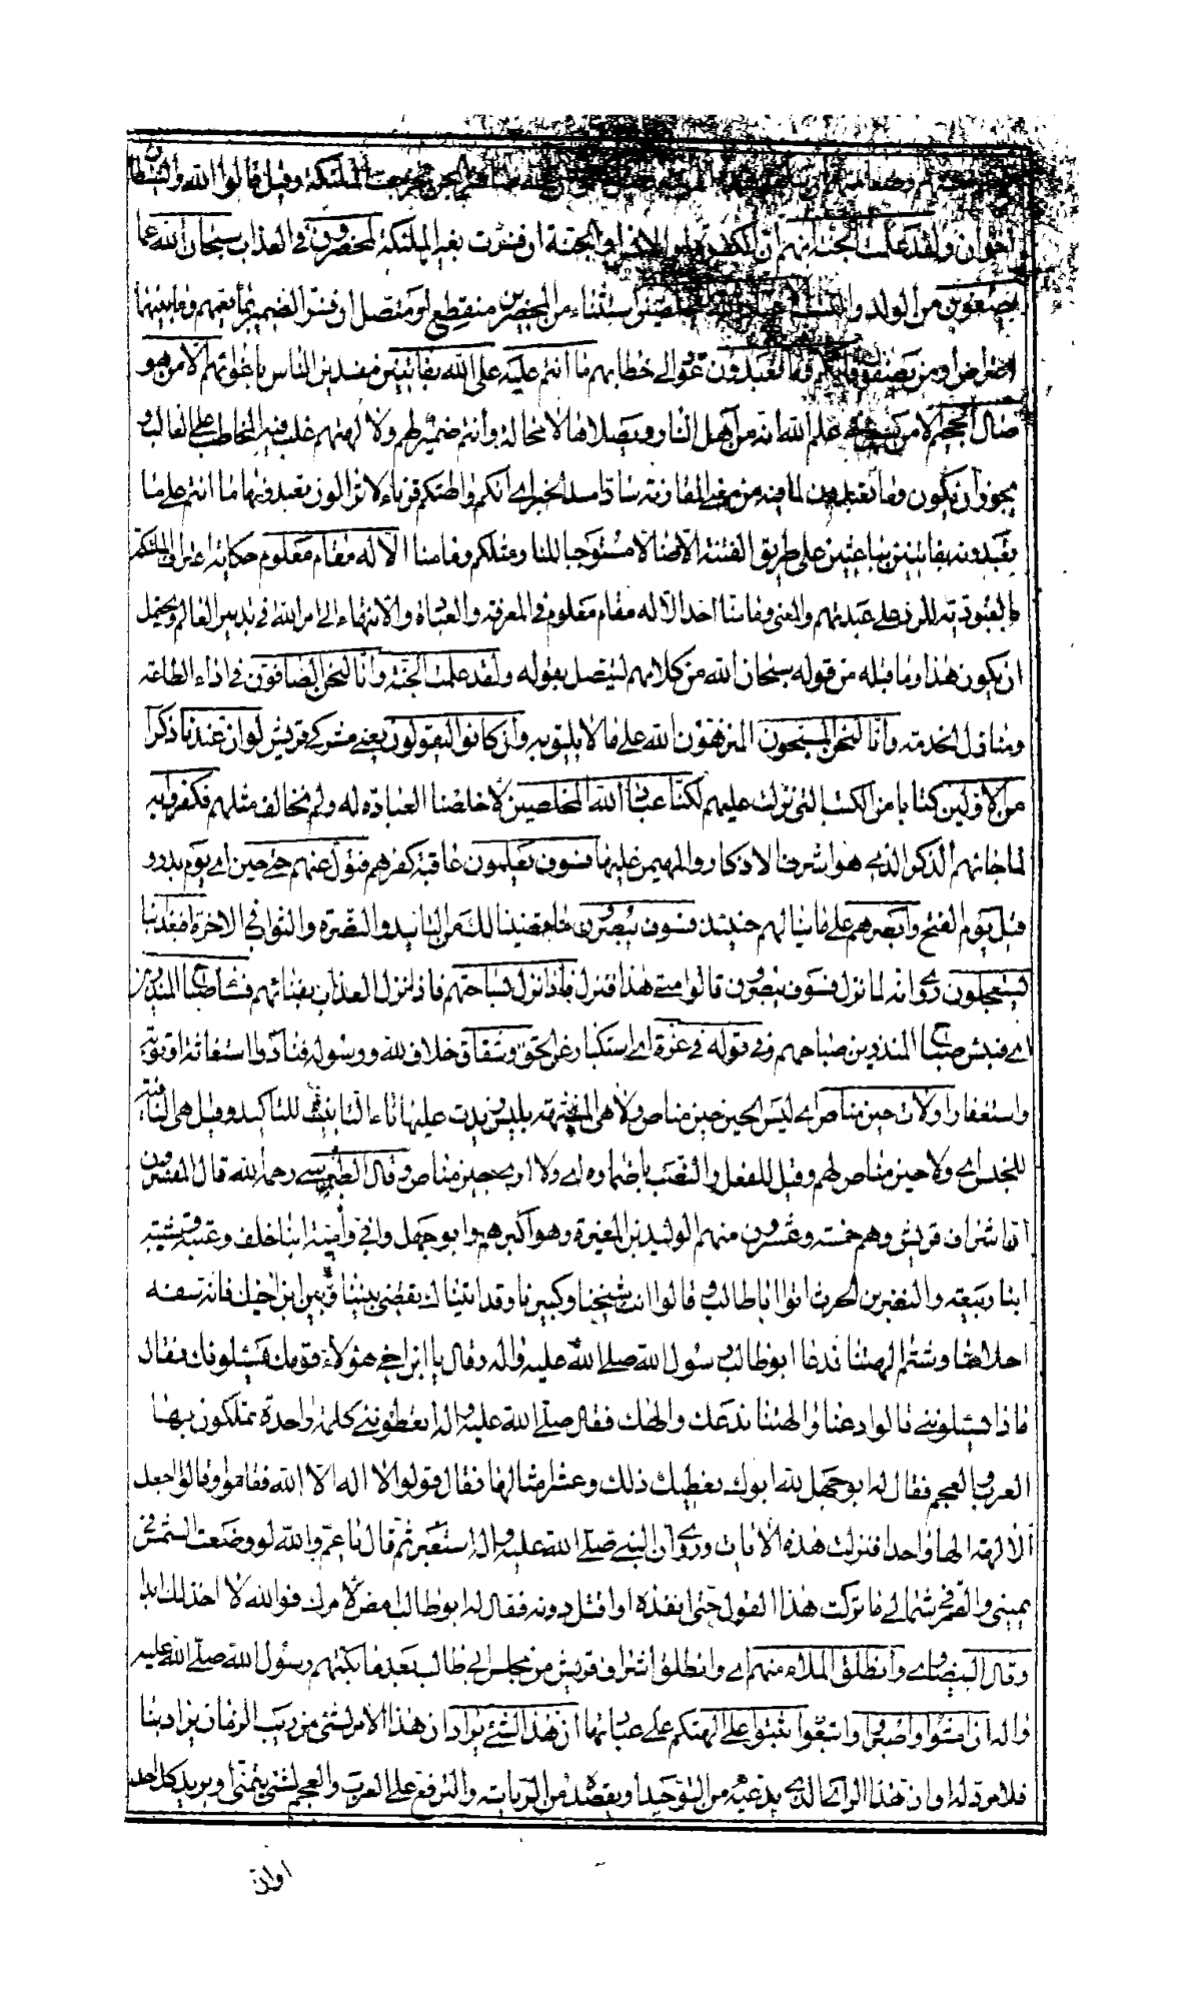 الجن فخرجت الملئكة وقيل قالوا الله والشيطان
اخوان ولقد علمت الجنة انهم ان الكفرة او الانس والجنة ان فسرت بغير الملئكة لمحضرون في العذاب سبحان الله عما
يصفون من الولد والنسب الا عباد الله المخلصين استثناء من المحضرين منقطع او متصل ان فسر الضمير بما يعمهم وما بينهما
اعتراض او من يصفون فانكم وما تعبدون عود الى خطابهم ما انتم عليه على الله بفاتنين مفسدين الناس باغوائهم الا من هو
صال الجحيم الا من سبق في علم الله انه من اهل النار ويصلاها لا محالة وانتم ضمير لهم ولالهتهم غلب فيه المخاطب على الغالب و
يجوز ان يكون وما تعبدون لما فيه من معنى المقارنة سادا مسد الخبر اى انكم والهتكم قرناء لا تزالون تعبدونها ما انتم على ما
تعبدونه بفاتنين بباعثين على طريق الفتنة الا ضالا مستوجبا للنار مثلكم وما منا الا له مقام معلوم حكاية اعتراف الملئكة
بالعبودية للرد على عبدتهم والمعنى وما منا احد الا له مقام معلوم في المعرفة والعبادة والانتهاء الى امر الله في تدبير العالم ويحتمل
ان يكون هذا وما قبله من قوله سبحان الله من كلامهم ليتصل بقوله ولقد علمت الجنة وانا لنحن الصافون في اداء الطاعة
ومنازل الخدمة وانا لنحن المسبحون المنزهون الله على ما لا يليق به وان كانوا ليقولون يعنى مشركى قريش لو ان عندنا ذكرا
من الاولين كتابا من الكتب التى نزلت عليهم لكنا عباد الله المخلصين لاخلصنا العبادة له ولم نخالف مثلهم فكفروا به
لما جائهم الذكر الذى هو اشرف الاذكار والمهيمن عليها فسوف يعلمون عاقبة كفرهم فتول عنهم حتى حين اى يوم بدر و
قيل يوم الفتح وابصرهم على ما ينالهم حينئذ فسوف يبصرون ما قضينا لك من التائيد والنصرة والثواب في الاخرة افبعذابنا
يستعجلون روى انه لما نزل فسوف يبصرون قالوا متى هذا فنزل فاذا نزل بساحتهم فاذا نزل العذاب بفنائهم فساء صباح المنذرين
اى فبئس صباح المنذرين صباحهم وفي قوله في عزة اى استكبار عن الحق وشقاق خلاف لله ورسوله فنادوا استغاثة او توبة
واستغفارا ولات حين مناص اى ليس الحين حين مناص ولا هى المشبهة بليس زيدت عليها تاء التانيث للتاكيد وقيل هى النافية
للجنس اى ولا حين مناص لهم وقيل للفعل والنصب باضماره اى ولا ارى حين مناص وقال الطبرسى رحمه الله قال المفسرون
ان اشراف قريش وهم خمسة وعشرون منهم الوليد بن المغيرة وهو اكبرهم وابو جهل وابي وامية ابنا خلف وعتبة وشيبة
ابنا ربيعة والنضر بن الحرث اتوا ابا طالب و قالوا انت شيخنا وكبيرنا وقد اتيناك تقضى بيننا وبين ابن اخيك فانه سفه
احلامنا وشتم الهتنا فدعا ابو طالب رسول الله صلى الله عليه واله وقال يا ابن اخى هؤلاء قومك يسئلونك فقال
ماذا يسئلوننى قالوا دعنا والهتنا ندعك والهك فقال صلى الله عليه واله اتعطوننى كلمة واحدة تملكون بها
العرب والعجم فقال له ابو جهل لله ابوك نعطيك ذلك وعشر امثالها فقال قولوا لا اله الا الله فقاموا وقالوا اجعل
الالهة الها واحدا فنزلت هذه الايات وروى ان النبى صلى الله عليه واله استعبر ثم قال يا عم والله لو وضعت الشمس في
يمينى والقمر في شمالى ما تركت هذا القول حتى انفذه او اقتل دونه فقال له ابو طالب امض لامرك فوالله لا اخذلك ابدا
وقال البيضاوى وانطلق الملاء منهم اى وانطلق اشراف قريش من مجلس ابى طالب بعد ما بكتهم رسول الله صلى الله عليه
واله ان امشوا واصبروا واثبتوا على الهتكم على عبادتها ان هذا لشئ يراد ان هذا الامر لشئ من ريب الزمان يراد بنا
فلا مرد له او ان هذا الراى الذى يدعيه من التوحيد او يقصده من الرياسة والترفع على العرب والعجم لشئ يتمنى او يريده كل احد
او ان